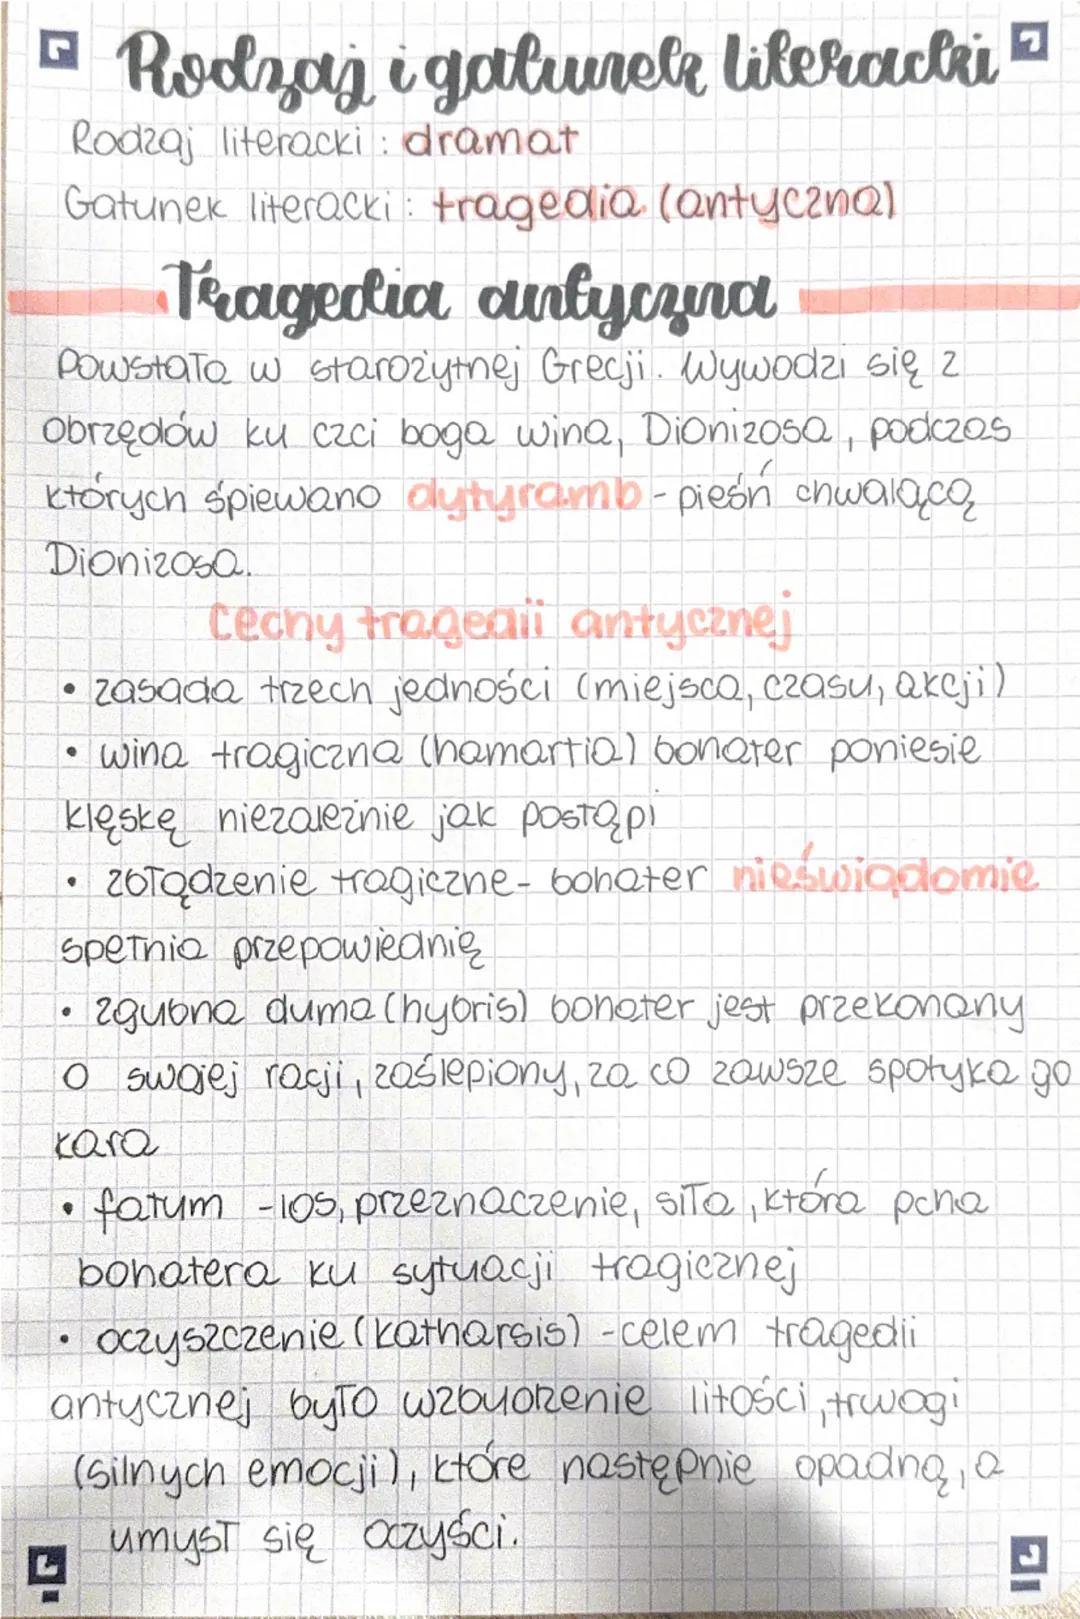 Rodzaj i gatunek literacki
Rodzaj literacki : dramat
Gatunek literacki : tragedia (antyczna)
Tragedia antyczna
Powstała w starożytnej Grecji. Wywodzi się z
obrzędów ku czci boga wina, Dionizosa, podczas
których śpiewano dytyramb - pieśń chwalącą
Dionizosa.
Cechy tragedii antycznej
• zasada trzech jedności (miejsca, czasu, akcji)
• wina tragiczna (hamartia) bohater poniesie
klęskę niezależnie jak postąpi
• zbłądzenie tragiczne - bohater nieświadomie
spełnia przepowiednię
• zgubna duma (hybris) bohater jest przekonany
o swojej racji, zaślepiony, za co zawsze spotyka go
kara
• fatum - los, przeznaczenie, siła, która pcha
bohatera ku sytuacji tragicznej
• oczyszczenie (katharsis) - celem tragedii
antycznej było wzbudzenie litości, trwogi
(silnych emocji), które następnie opadną, a
umysł się oczyści.